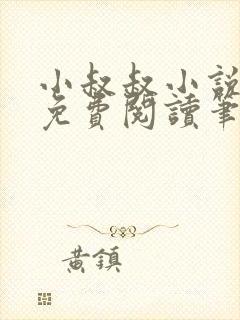 小叔叔小說
免費閱讀筆
黃鎮